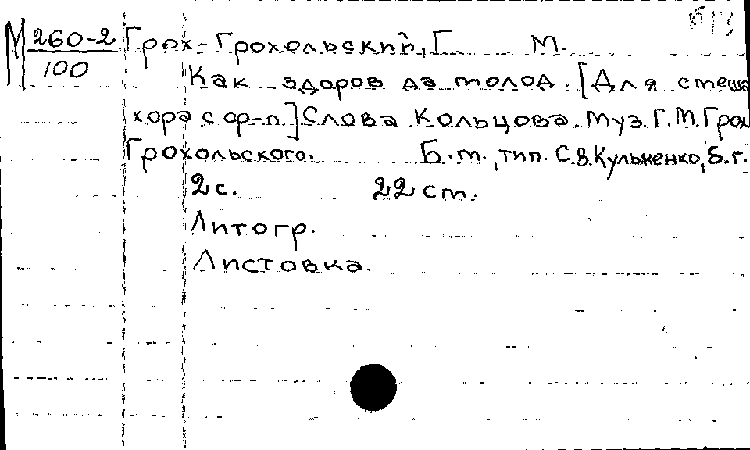 М 260-2 Грох-Грохольский, Г. М.
100
Как здоров да молод. [Для смеш.
хора с ф-п.] Слова Кольцова. Муз. Г. М. Грох-
Грохольского. Б. м., тип. С. В. Кульженко, б. г.
2 с. 22 см.
Литогр.
Листовка.